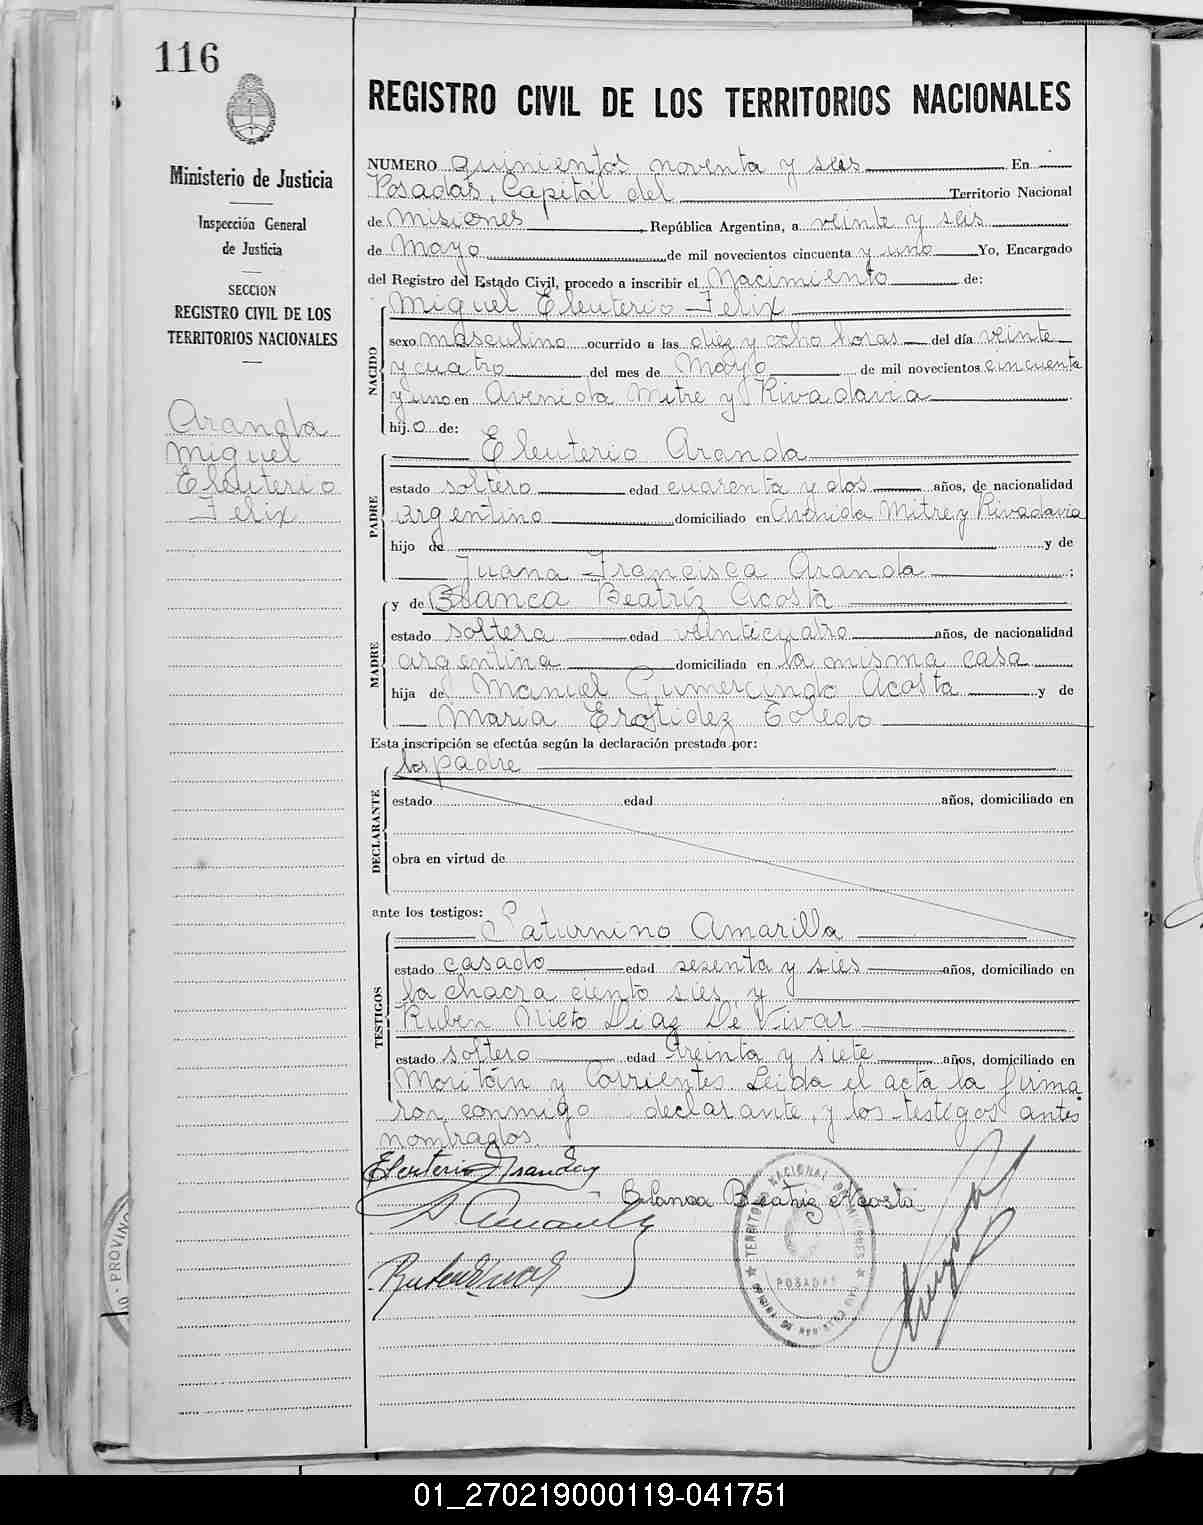 116
Ministerio de Justicia
Inspección General
de Justicia
SECCION
REGISTRO CIVIL DE LOS
TERRITORIOS NACIONALES
Aranda
Miguel
Eleuterio
Felix
REGISTRO CIVIL DE LOS TERRITORIOS NACIONALES
NUMERO quinientos noventa y seis En
Posadas, Capital del Territorio Nacional
de Misiones, República Argentina, a veinte y seis
de Mayo de mil novecientos cincuenta y uno Yo, Encargado
del Registro del Estado Civil, procedo a inscribir el Nacimiento de:
NACIDO
Miguel Eleuterio Felix
sexo masculino ocurrido a las diez y ocho horas del día veinte
y cuatro del mes de Mayo de mil novecientos cincuenta
y uno en Avenida Mitre y Rivadavia
hij.o de:
PADRE
Eleuterio Aranda
estado soltero edad cuarenta y dos años, de nacionalidad
argentino domiciliado en Avenida Mitre y Rivadavia
hijo de y de
Juana Francisca Aranda ;
MADRE
y de Blanca Beatriz Acosta
estado soltera edad veinticuatro años, de nacionalidad
argentina domiciliada en la misma casa
hija de Manuel Gumercindo Acosta y de
Maria Erotidez Toledo
Esta inscripción se efectúa según la declaración prestada por:
DECLARANTE
los padre
estado edad años, domiciliado en
obra en virtud de
ante los testigos:
TESTIGOS
Saturnino Amarilla
estado casado edad sesenta y sies años, domiciliado en
la chacra ciento sies, y
Ruben Nieto Diaz De Vivar
estado soltero edad treinta y siete años, domiciliado en
Moritán y Corrientes. Leida el acta la firma
ron conmigo declarante, y los testigos antes
nombrados.
Eleuterio Aranda
Blanca Beatriz Acosta
TERRITORIO NACIONAL DE MISIONES
POSADAS
PROVINC
01_270219000119-041751